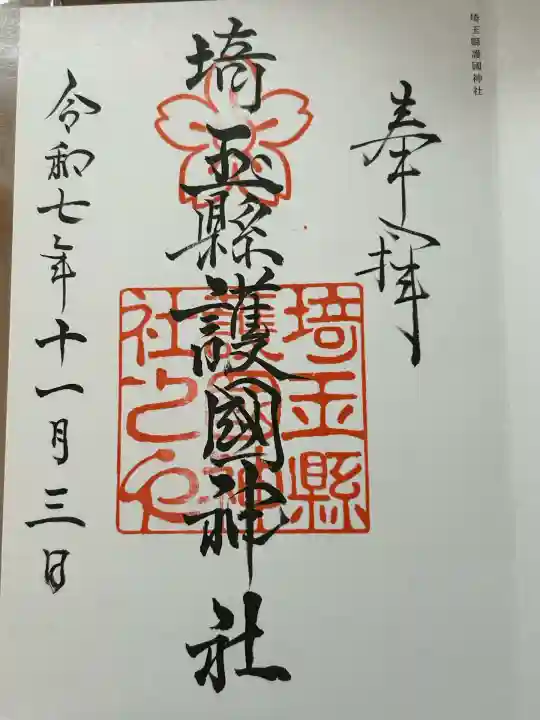 埼玉縣護國神社
奉拝
埼玉縣護國神社
埼玉縣
護國神
社之印
令和七年十一月三日